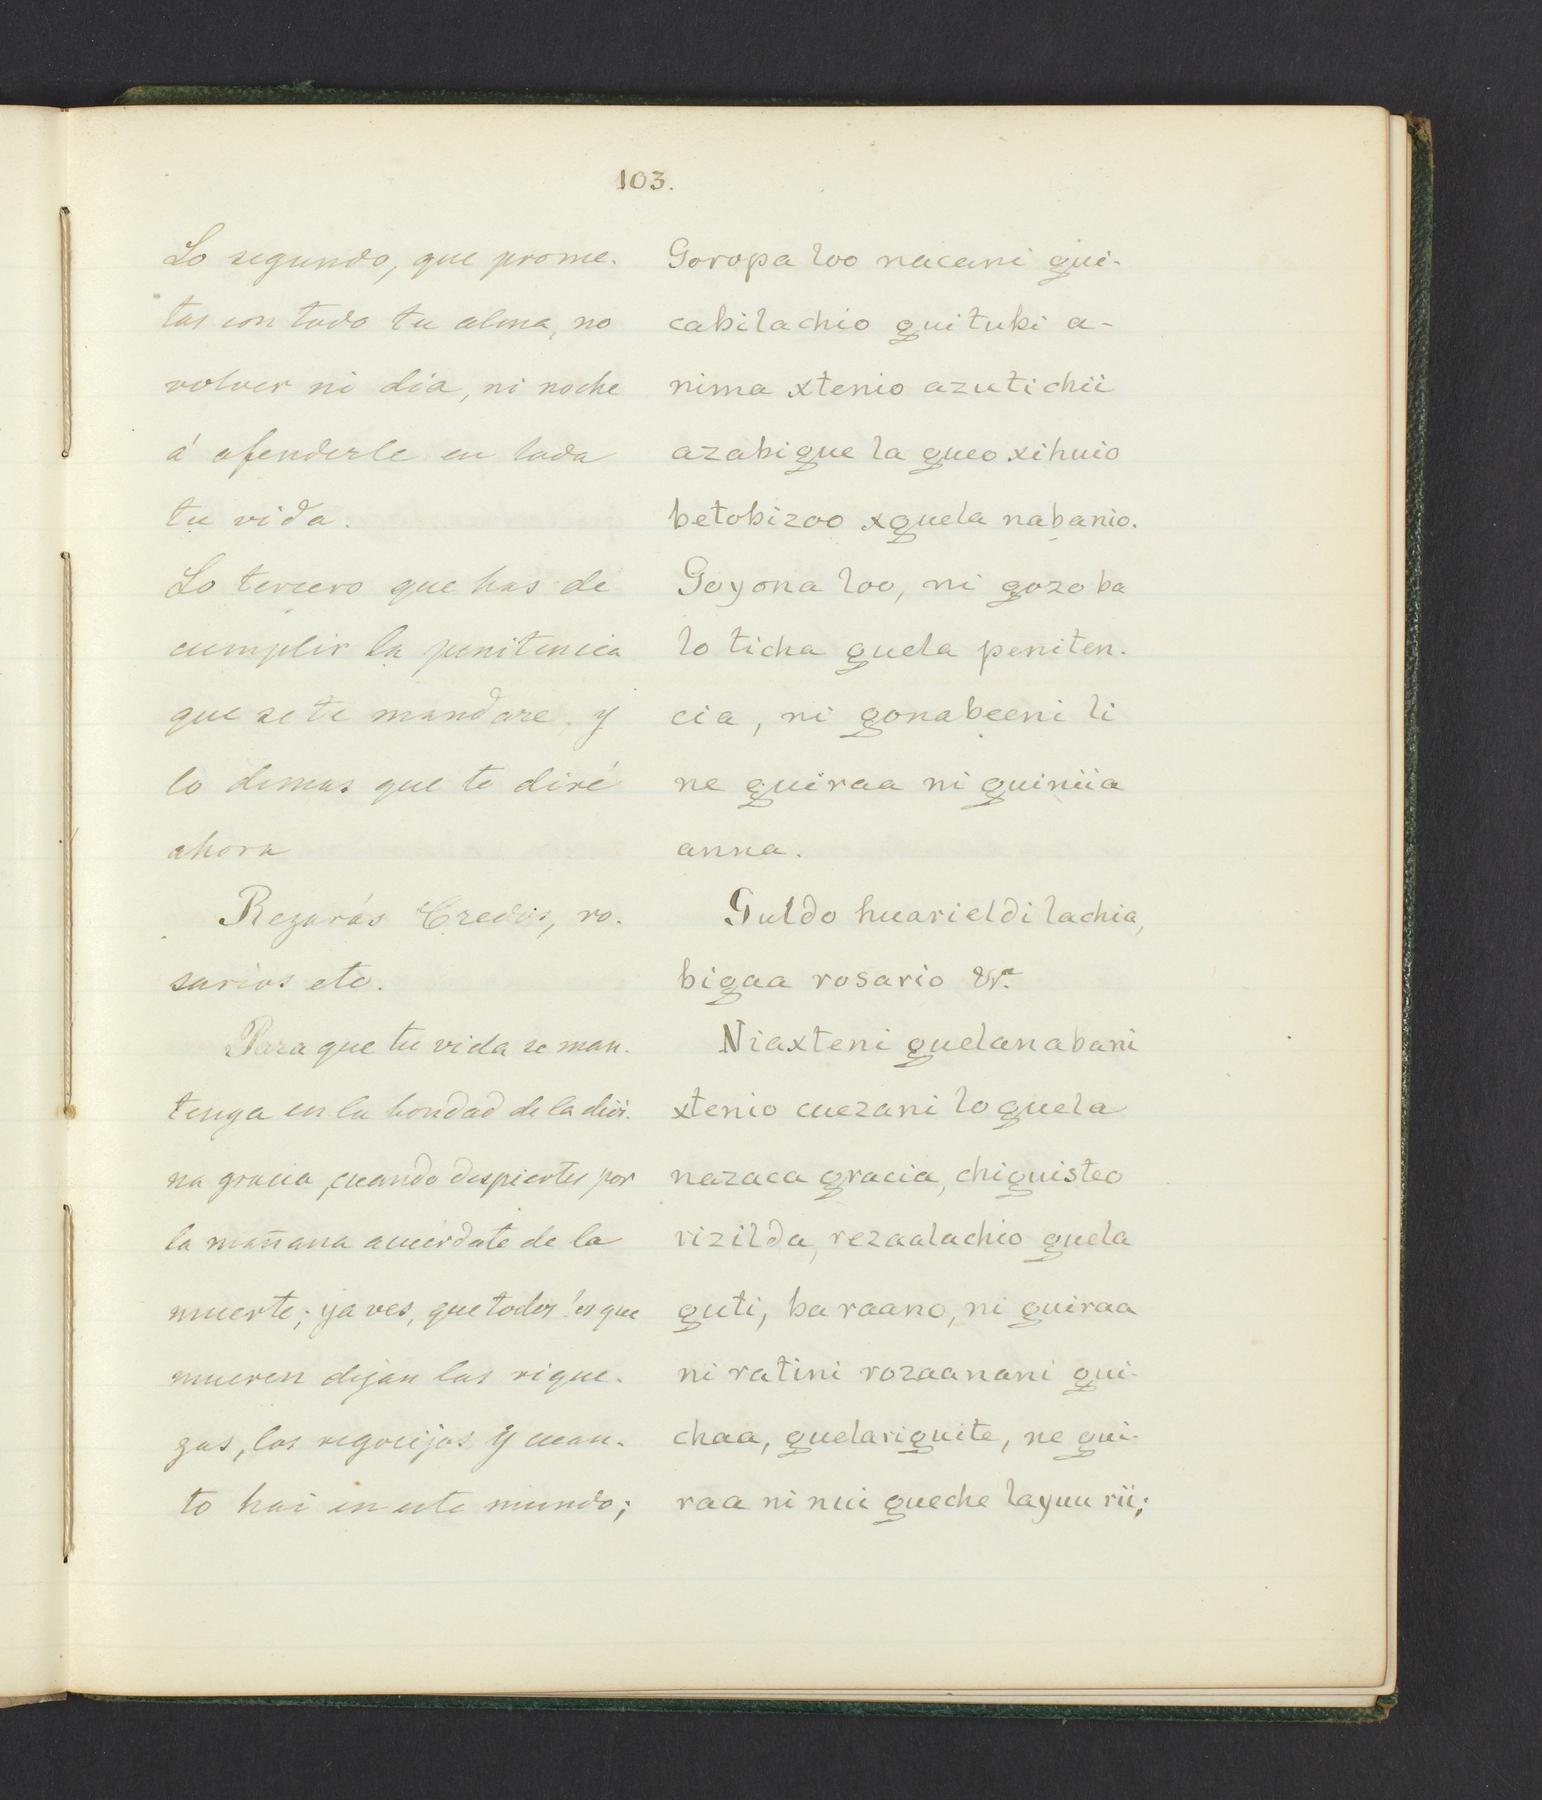 103.
Lo segundo, que prome-
tas con todo tu alma, no
volver ni día, ni noche
á ofenderle en toda
tu vida.
Lo tercero que has de
cumplir la penitencia
que se te mandare, y
lo demas que te diré
ahora
Rezarás Credos, ro-
sarios etc.
Para que tu vida se man-
tenga en la bondad de la divi-
na gracia, cuando despiertes por
la mañana acuerdate de la
muerte; ya ves, que todos los que
mueren dejan las rique-
zas, los regocijos y cuan-
to hai en este mundo;
Goropa loo nacani gui-
cabilachio guitubi a-
nima xtenio azutichii
azabigue la gueo xihuio
betobizoo xguela nabanio.
Goyona loo, ni gozoba
lo ticha guela peniten-
cia, ni gonabeeni li
ne guiraa ni guiniia
anna.
Guldo huarieldi lachia,
bigaa rosario &a.
Niaxteni guelanabani
xtenio cuezani lo guela
nazaca gracia, chiguisteo
rizilda, rezaalachio guela
guti, ba raano, ni guiraa
ni ratini rozaanani gui-
chaa, guelariguite, ne gui-
raa ni nui gueche layuu rii;